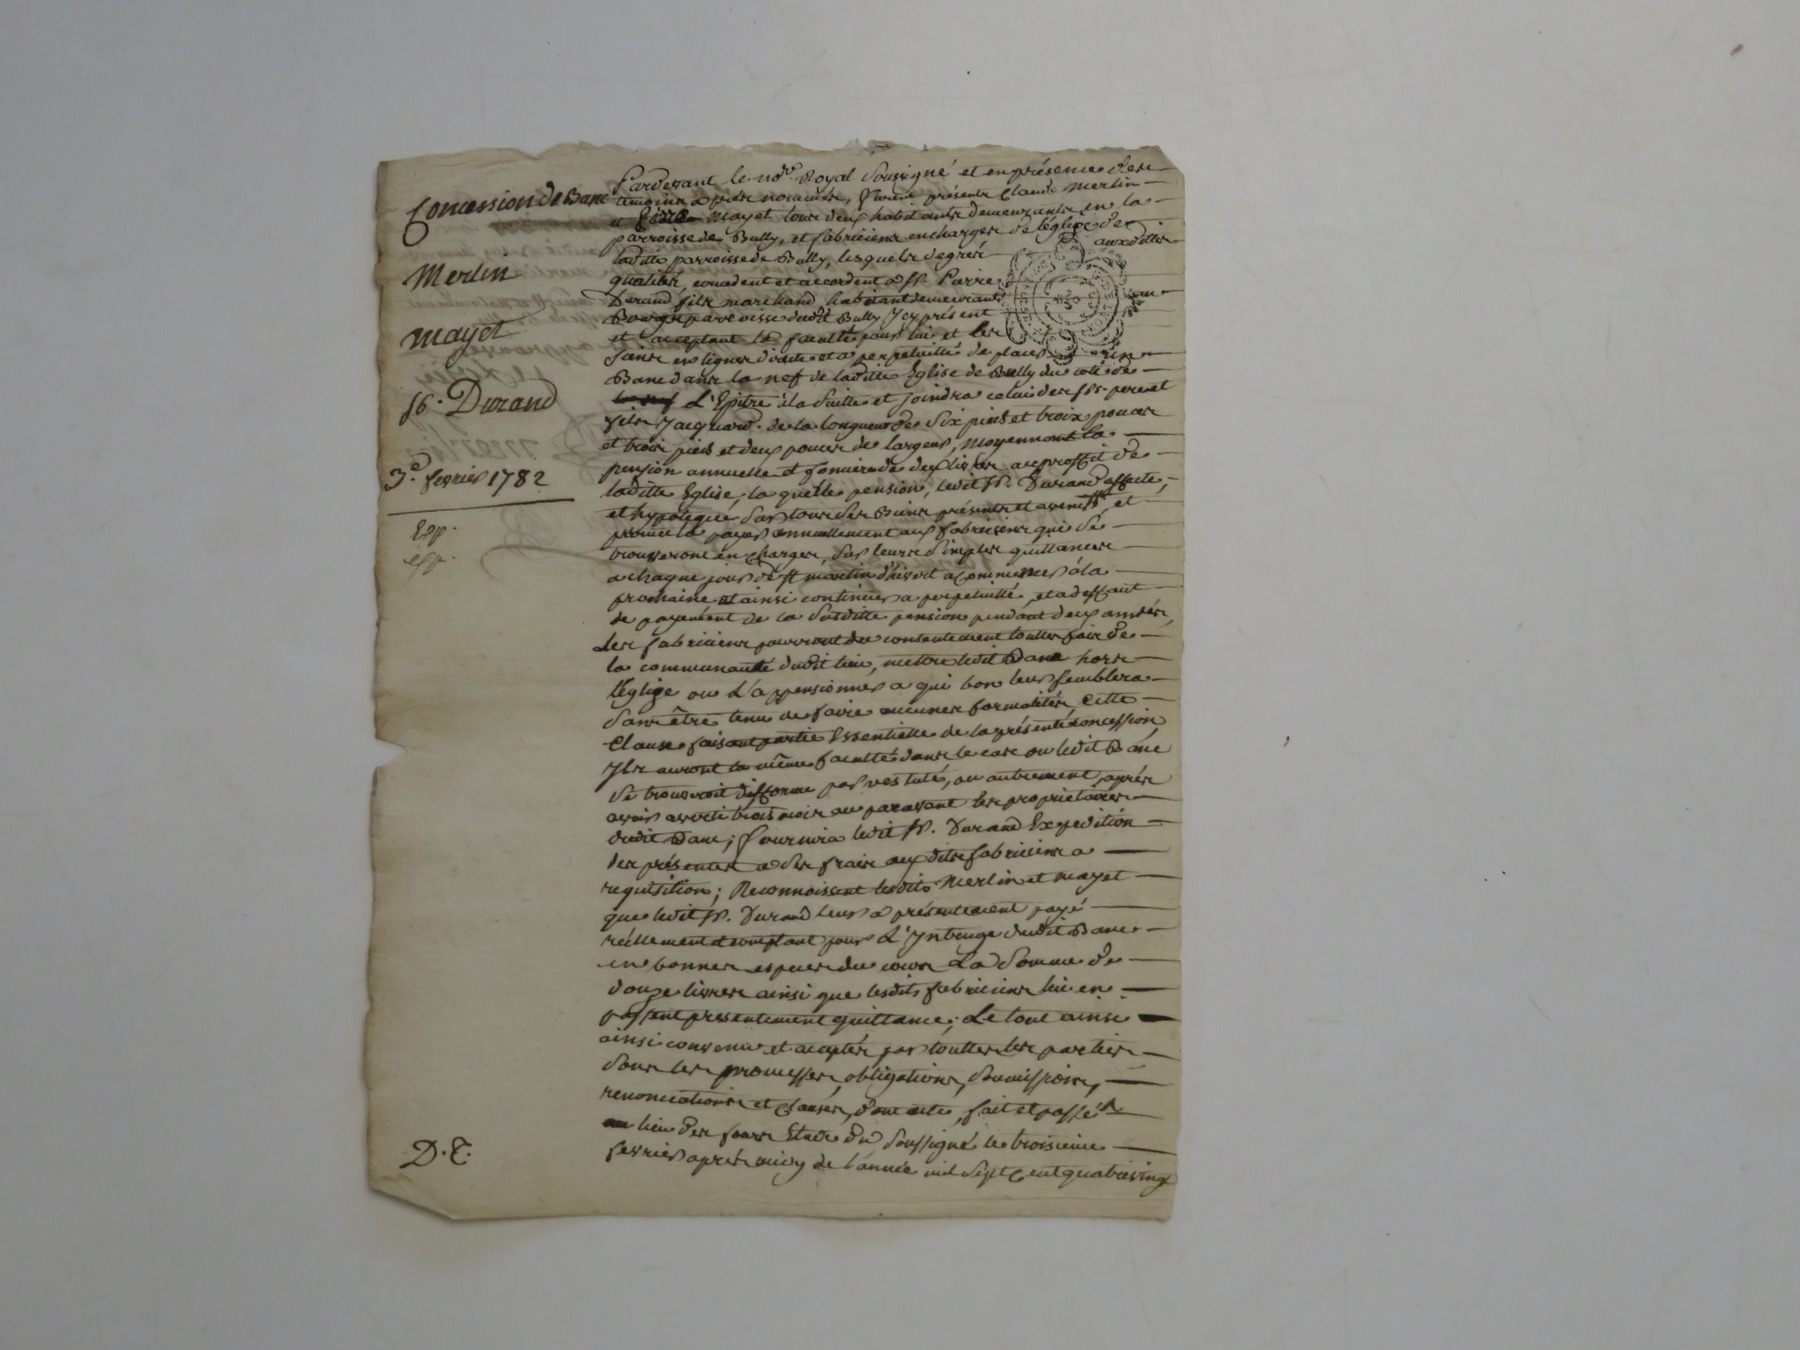 Concession de Banc
Merlin
mayet
Sr. Durand
3e. fevrier 1782
Exp.
exp.
Pardevant le nore. Royal Soussigné et en présence des
temoins après nommés, furent présents Claude Merlin
et mayet tous deux habitants demeurants en la
parroisse de Bully, et fabriciens en charges de l'église de
laditte parroisse de Bully, lesquels de gré auxdittes
qualités, concedent et accordent a Sr. Pierre
Durand fils marchand habitant demeurant au
Bourg parroisse dudit Bully Jcy présent
et acceptant la faculté pour lui et les
Siens en lignes droite et a perpetuitté de placer un
Banc dans la nef de laditte Eglise de Bully du coté de
L'Epitre à la Suitte et joindre celui des Srs. pere et
fils Jacquard. de la longueur de Six pieds et troix pouces
et trois pieds et deux pouces de largeur, moyennant la
pension annuelle et fonciere de deux livres au proffit de
laditte Eglise, la quelle pension, ledit Sr. Durand affecte,
et hypoteque Sur tous Ses Biens présents et avenirs, et
promet la payer annuellement aux fabriciens qui Se
trouveront en charges, Sur leurs Simples quittances
a chaque jour de St martin d'hivert a commencer à la
prochaine et ainsi continuer a perpetuitté, et a deffaut
de payement de la Susditte pension pendant deux années,
Les fabriciens pourront du consentement touttes fois de
la communauté dudit lieu, mettre ledit Banc hors
l'église ou L'appensionner a qui bon leur Semblera
Sans être tenu de faire aucunes formalités, Cette
Clause faisant partie Essentielle de la présente concession,
Jls auront la même faculté dans le cas ou ledit Banc
Se trouveroit difforme par vestuté, ou autrement, après
avoir averti trois mois au paravant les proprietaires
dudit Banc; fournira ledit Sr. Durand Expedition
des présentes a Ses frais aux dits fabriciens a
requisition; Reconnoissent lesdits Merlin et mayet
que ledit Sr. Durand leur a présentement payé
réellement et comptant pour L'Jntrage dudit Banc
en bonnes especes du cours La Somme de
douze livres ainsi que lesdits fabriciens lui en
passent presentement quittance; Le tout ainsi
ainsi convenu et accepté par touttes les parties
Sous les promesses, obligations, Soumissions,
renonciations et clauses, dont acte, fait et passé
au lieu des fours Etude du Soussigné le troisieme
fevrier après midy de l'année mil Sept Cent quatrevingt
D.T.